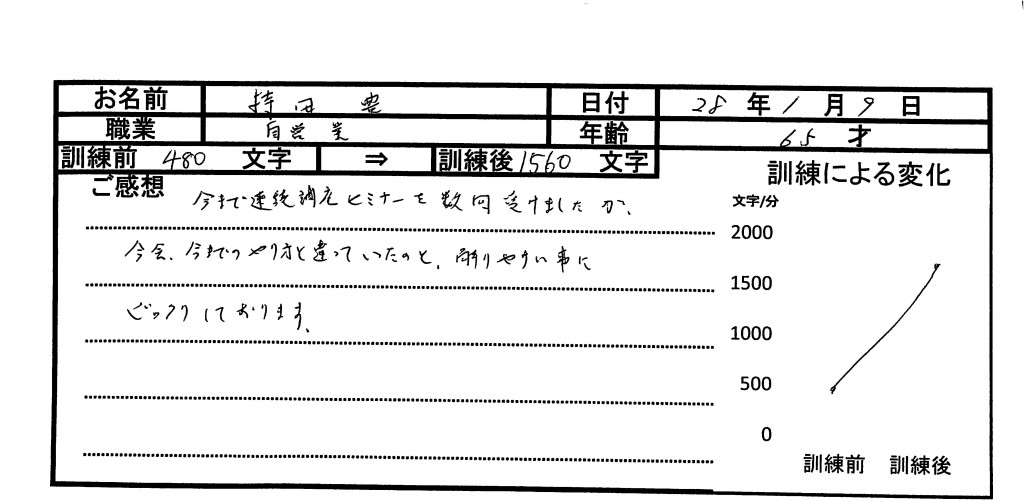 お名前 持田 豊 日付 28年1月9日
職業 自営業 年齢 65才
訓練前 480 文字 ⇒ 訓練後 1560 文字
ご感想
今まで連続講座セミナーを数回受けましたが、
今会、今までのやり方と違っていたのと、解りやすい事に
ビックリしております。
訓練による変化
文字/分
2000
1500
1000
500
0
訓練前 訓練後